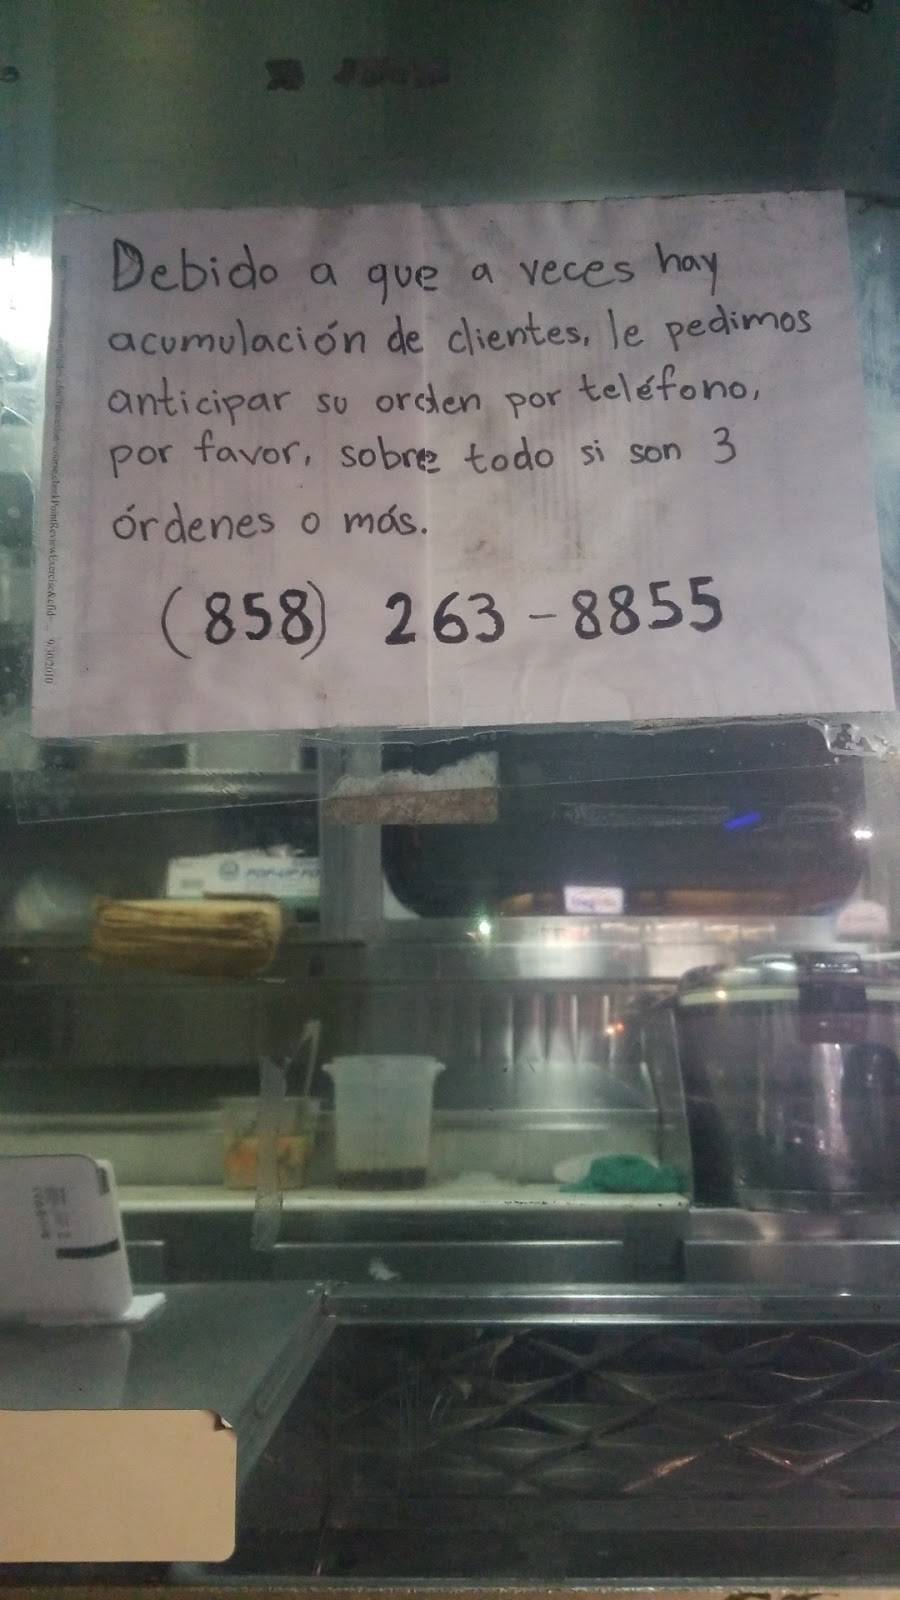 Debido a que a veces hay
acumulación de clientes, le pedimos
anticipar su orden por teléfono,
por favor, sobre todo si son 3
órdenes o más.
(858) 263-8855
POP-UP